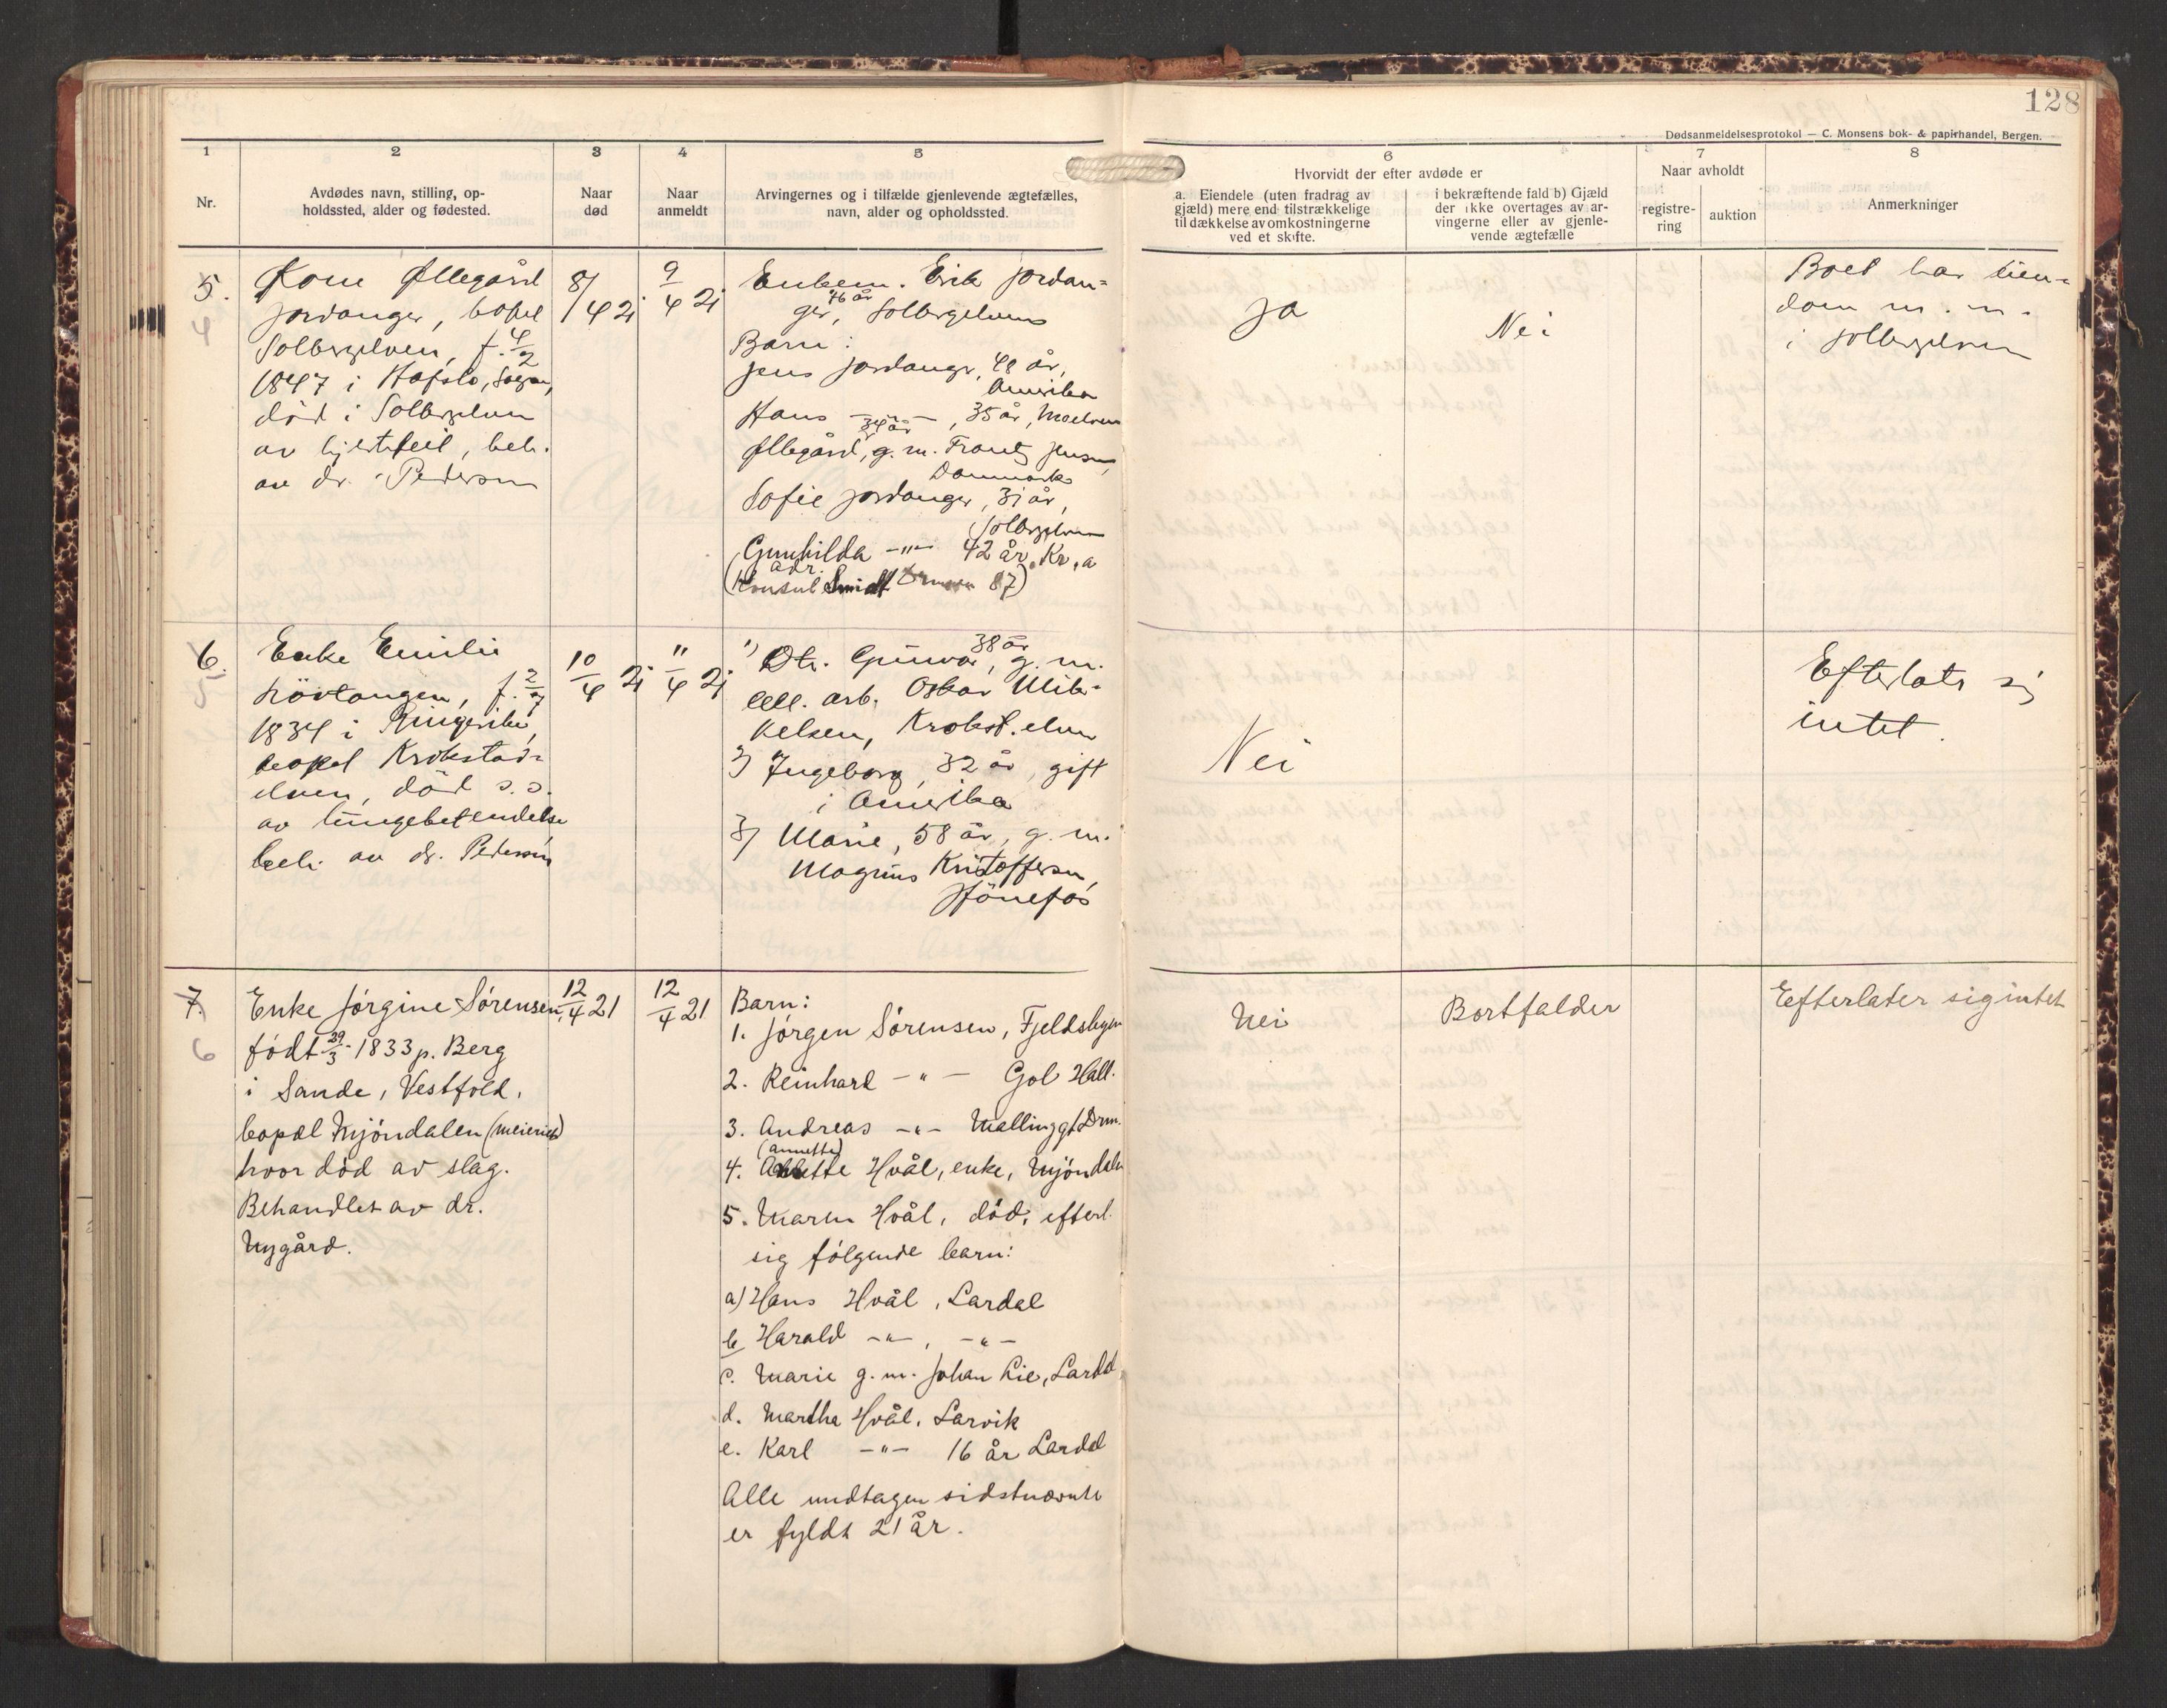 128
Dødsanmeldelsesprotokol — C. Monsens bok- & papirhandel, Bergen.
1
2
3
4
5
6
7
8
Nr.
Avdødes navn, stilling, op-
holdssted, alder og fødested.
Naar
død
Naar
anmeldt
Arvingernes og i tilfælde gjenlevende ægtefælles,
navn, alder og opholdssted.
Hvorvidt der efter avdøde er
a. Eiendele (uten fradrag av
gjæld) mere end tilstrækkelige
til dækkelse av omkostningerne
ved et skifte.
i bekræftende fald b) Gjæld
der ikke overtages av ar-
vingerne eller av gjenle-
vende ægtefælle
Naar avholdt
registre-
ring
auktion
Anmerkninger
5.
4
Kone Øllegård
Jordanger, bopæl
Solbergelven, f. 4/2
1847 i Hafslo, Sogn,
död i Solbergelven
av hjertefeil, beh.
av dr. Pedersen
8/4 21
9/4 21
Enkem. Erik Jordan-
ger, 76 år, Solbergelven
Barn:
Jens Jordanger, 48 år,
Amerika
Hans -"-, 35 år,
34 år
Øllegård, g. m. Frantz Jensen,
Danmark
Sofie Jordanger, 31 år,
Solbergelven
Gunhilda -"- 42 år, Kr.a
(adr.
Konsul Smidt 87)
Ja
Nei
Boet har eien-
dom m. m.
i Solbergelven
6.
5
Enke Emilie
Hövlangen, f. 2/7
1834 i Ringerike,
bopæl Krokstad-
elven, död s.s.
av lungebetendelse
beh. av dr. Pedersen
10/4 21
11/4 21
1) Dtr. Gunvor, 38 år, g. m.
cell. arb. Oskar Mik-
kelsen, Krokst.elven
2) Ingeborg, 32 år, gift
i Amerika
3) Marie, 58 år, g. m.
Magnus Kristoffersen,
Hönefos
Nei
Efterlatr sig
intet.
7.
6
Enke Jørgine Sørensen,
født 29/3 1833 p. Berg
i Sande, Vestfold,
bopæl Mjøndalen (meieriet)
hvor død av slag.
Behandlet av dr.
Nygård.
12/4 21
12/4 21
Barn:
1. Jørgen Sørensen, Fjeldsbyen
2. Reinhard -"- Gol Hall.
3. Andreas -"- Mallinggt Drm.
(Annette)
4. Annette Hvål, enke, Mjøndalen
5. Maren Hvål, død, efterl.
sig følgende barn:
a) Hans Hvål, Lardal
b. Harald -"-, -"-
c. Marie g. m. Johan Lie, Lardal
d. Martha Hvål, Larvik
e. Karl -"- 16 år Lardal
Alle undtagen sidstnævnte
er fyldt 21 år.
Nei
Bortfalder
Efterlater sig intet